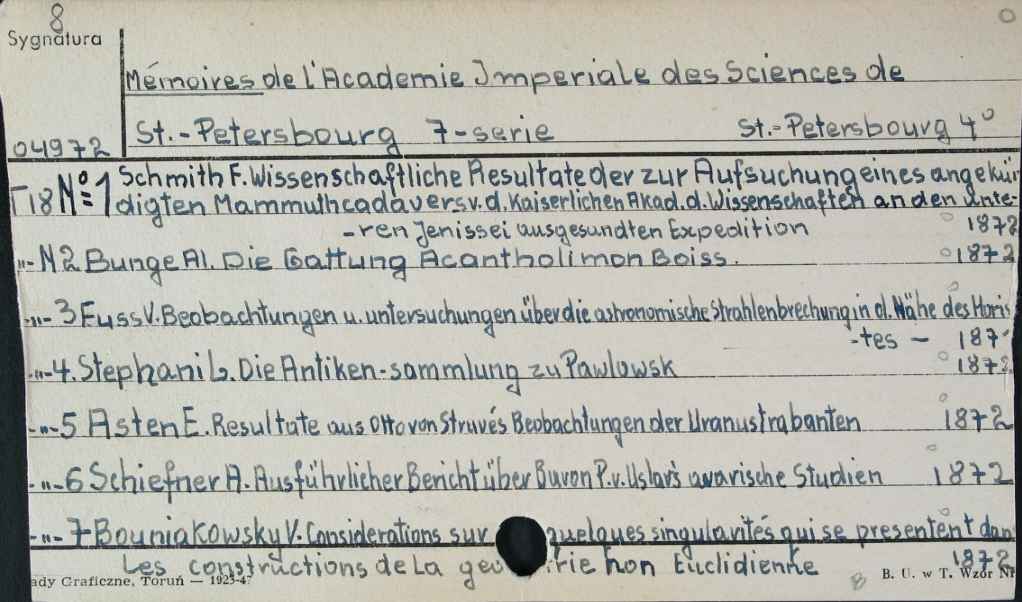 8
Sygnatura
Mémoires de l'Academie Imperiale des Sciences de
St.-Petersbourg 7-serie St.-Petersbourg 4°
04972
T18 № 1 Schmith F. Wissenschaftliche Resultate der zur Aufsuchung eines angekün
digten Mammuthcadavers v. d. Kaiserlichen Akad. d. Wissenschaften an den Unte-
-ren Jenissei ausgesundten Expedition 1872
-"- N2 Bunge Al. Die Gattung Acantholimon Boiss. 1872
-"- 3 Fuss V. Beobachtungen u. untersuchungen über die astronomische Strahlenbrechung in d. Nähe des Horis
-tes - 187
-"- 4. Stephani L. Die Antiken-sammlung zu Pawlowsk 1872
-"- 5 Asten E. Resultate aus Otto von Struvés Beobachtungen der Uranustrabanten 1872
-"- 6 Schiefner A. Ausführlicher Bericht über Buron P. v. Uslar's awarische Studien 1872
-"- 7 Bouniakowsky V. Considerations sur quelques singularités qui se presentent dan
Les constructions de La geo rie non Euclidienne 1872
ady Graficzne, Toruń — 1923-47 B B. U. w T. Wzór Nr